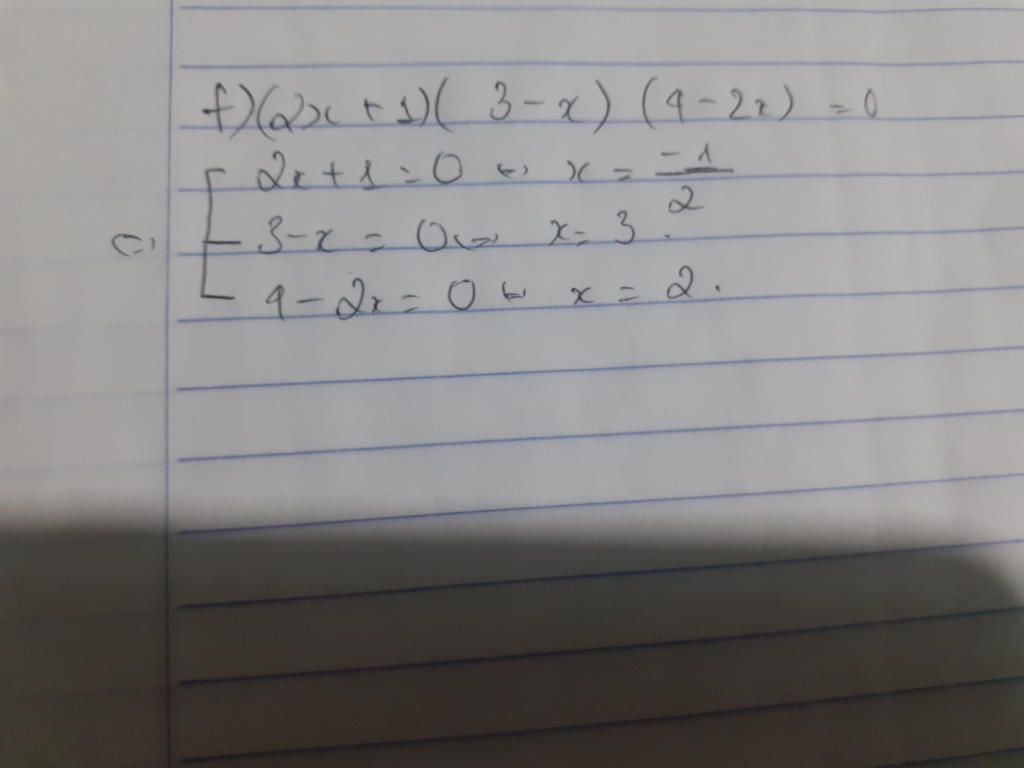 f) (2x + 1) ( 3 - x ) (4 - 2x) = 0
2x + 1 = 0 ⇔ x = -1/2
⇔ 3 - x = 0 ⇔ x = 3.
4 - 2x = 0 ⇔ x = 2.